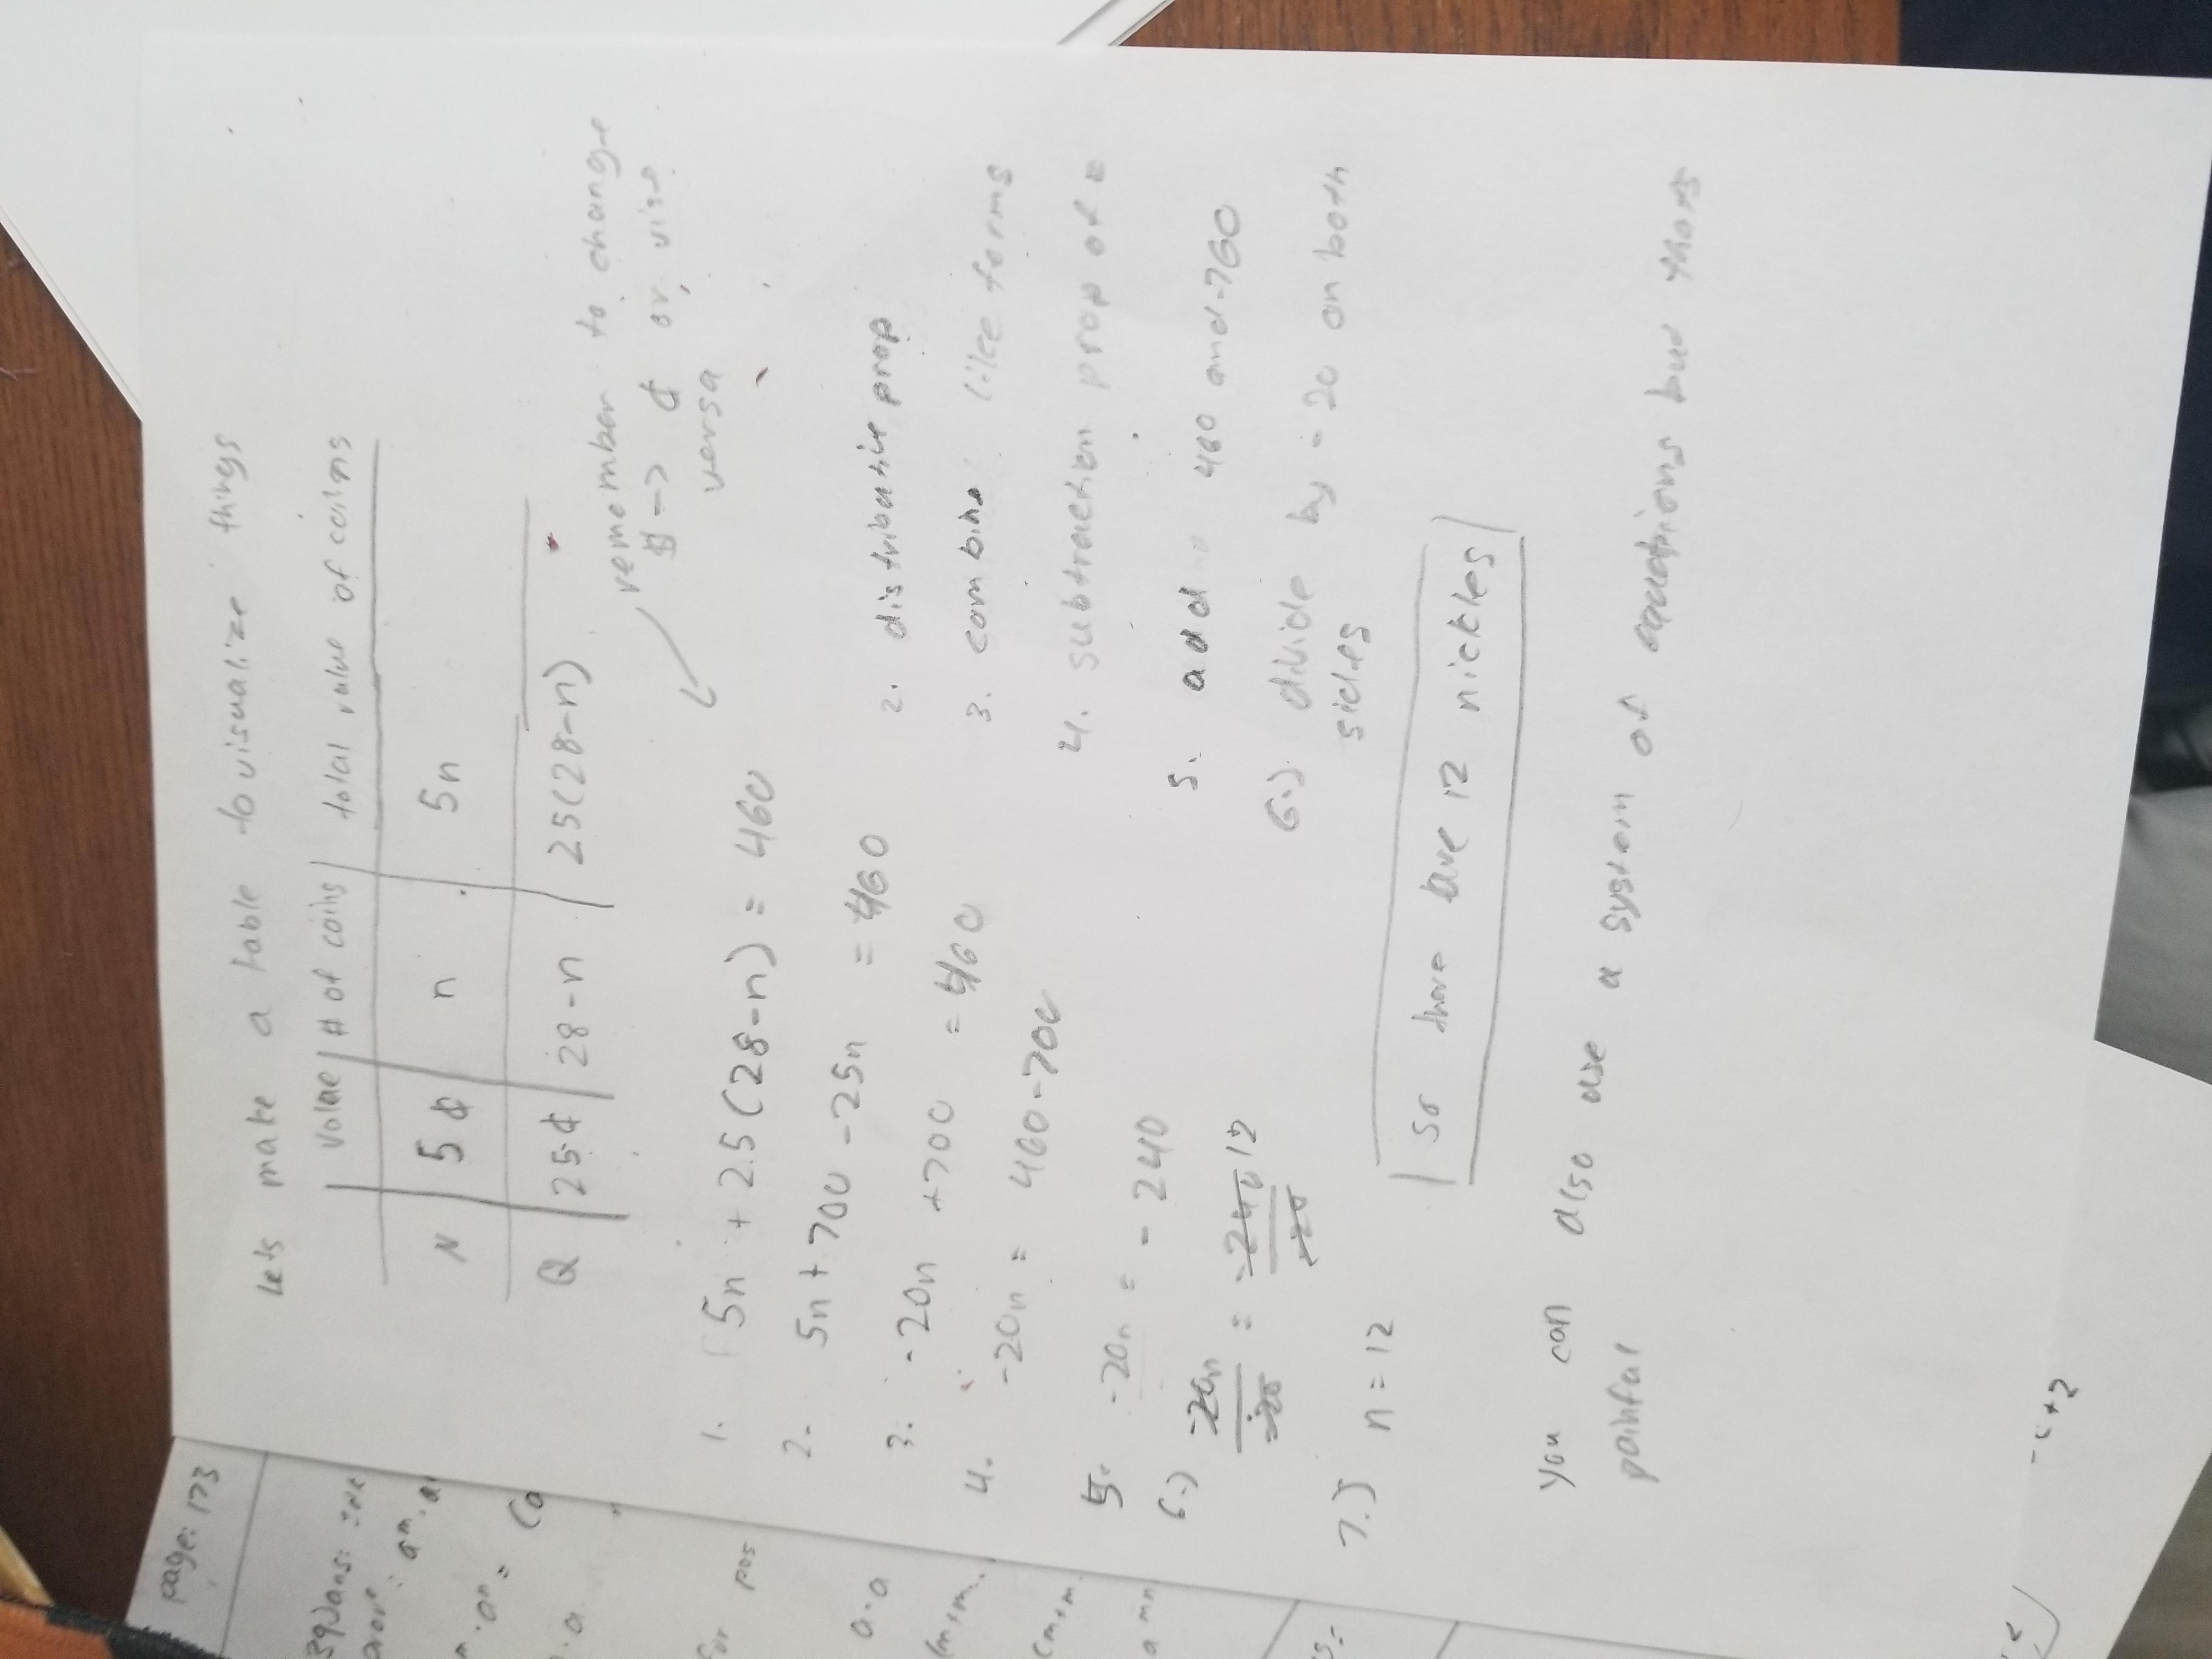 Lets make a table to visualize things
value | # of coins | total value of coins
N | 5¢ | n | 5n
Q | 25¢ | 28-n | 25(28-n)
remember to change
$ -> ¢ or vise
versa
1. 5n + 25(28-n) = 460
2. 5n + 700 - 25n = 460 2. distributive prop
3. -20n + 700 = 460 3. combine like terms
4. -20n = 460-700 4. subtraction prop of =
5. -20n = -240 5. add 460 and -700
6.) -20n/-20 = -240/-20 12 6.) divide by -20 on both
sides
7.) n=12
so there are 12 nickles
You can also use a system of equations but thats
painful
page: 173
39) ans:
for pos
a·a
-c+2